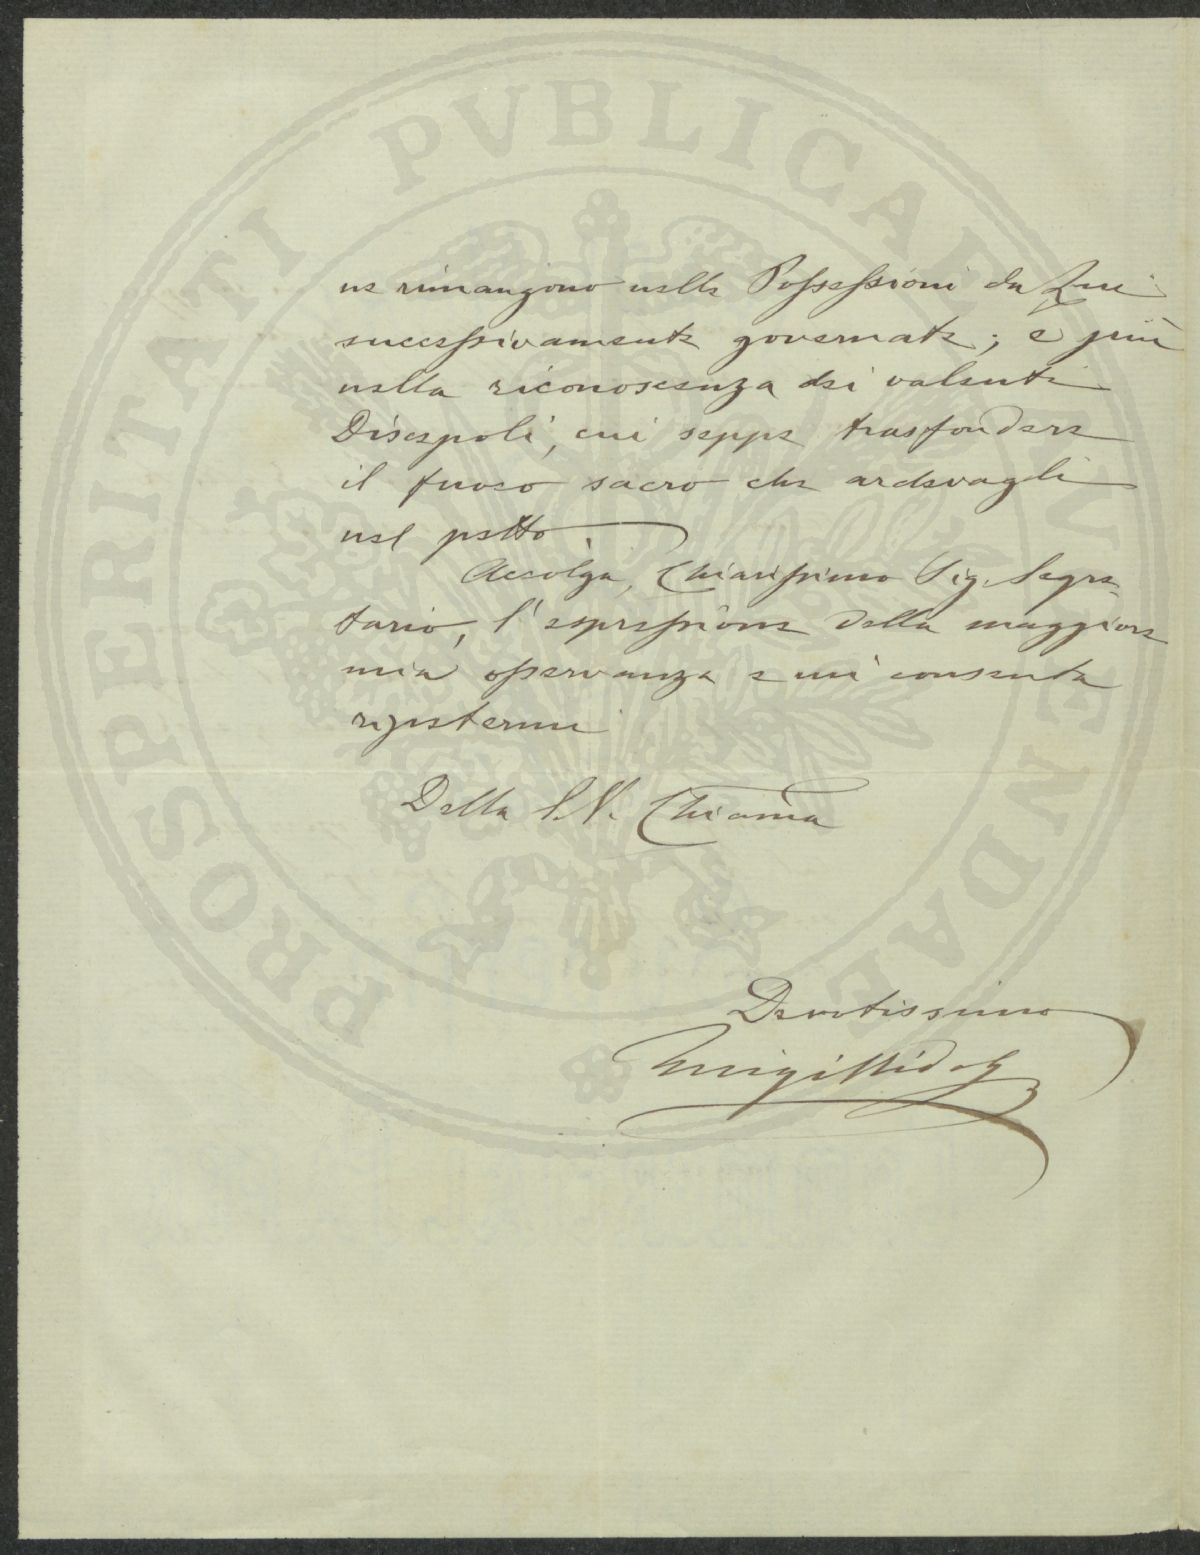 ne rimangono nelle Possessioni da Lui
successivamente governate; e più
nella riconoscenza dei valenti
Discepoli, cui seppe trasfondere
il fuoco sacro che ardevagli
nel petto.
Accolga, Chiarissimo Sig. Segre-
tario, l'espressione della maggiore
mia osservanza e mi consenta
ripetermi
Della S.V. Chiarma
Devotissimo
Luigi
PROSPERITATI PVBLICAE AVGENDAE